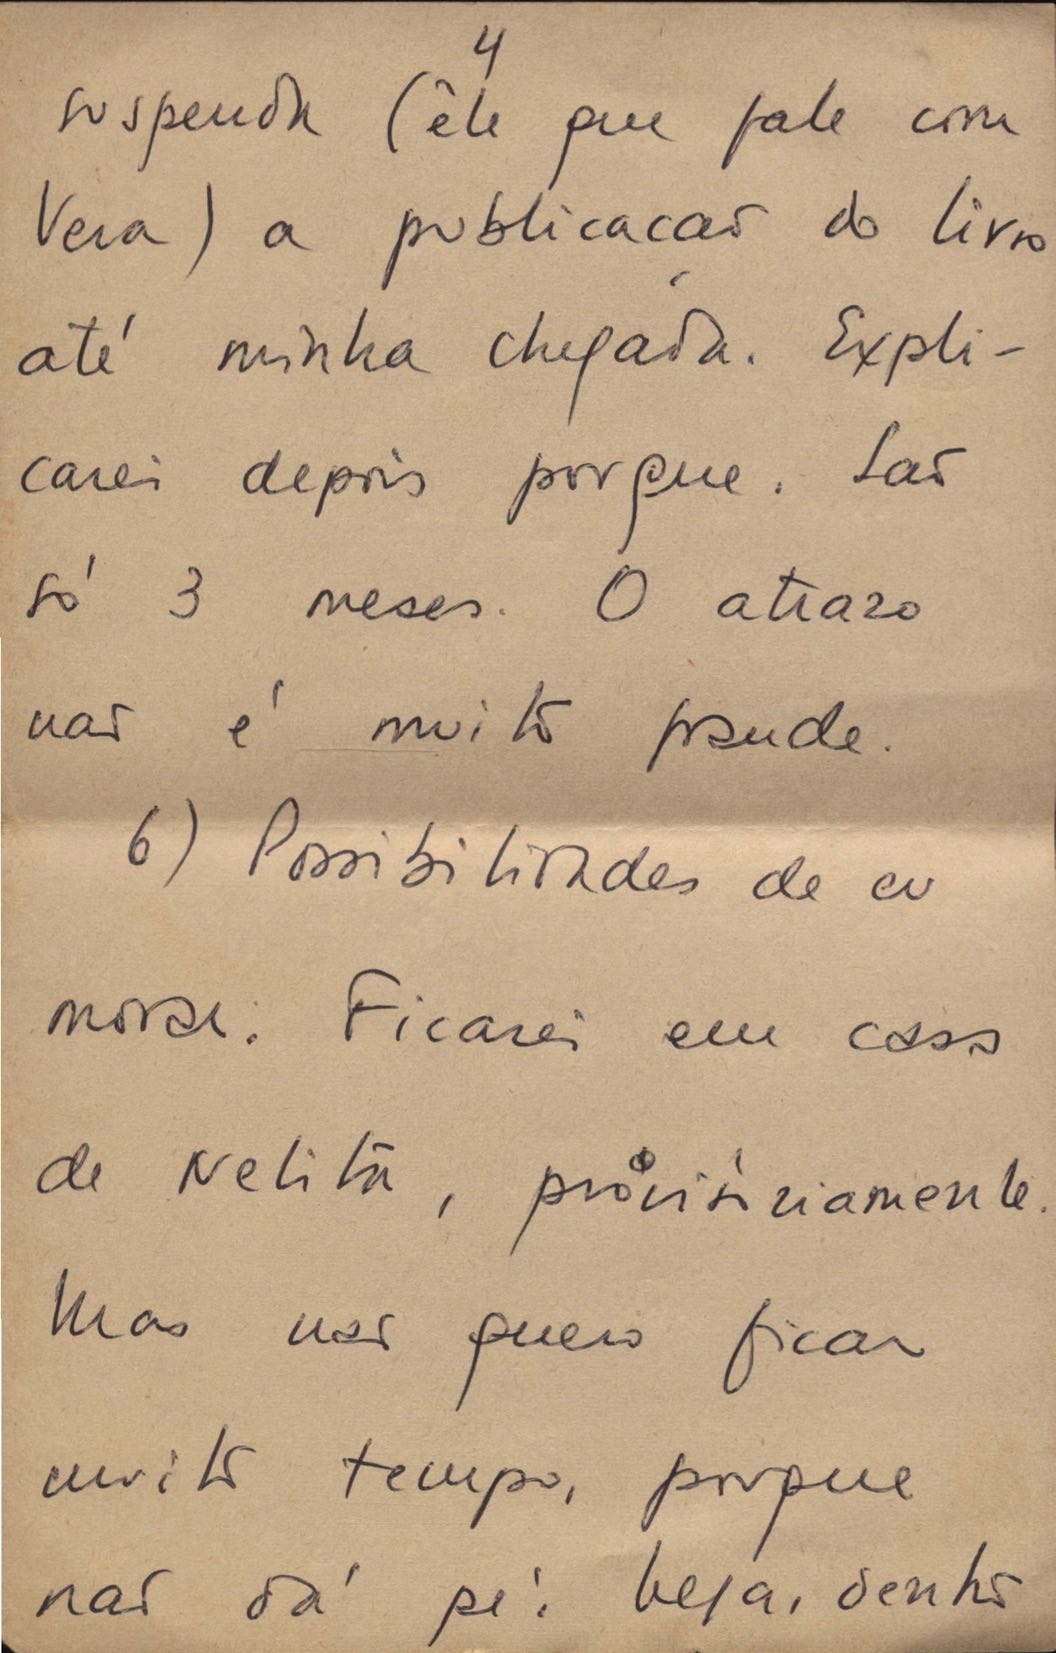 4
suspenda (êle que fale com
Vera) a publicação do livro
até minha chegada. Expli-
carei depois porque. São
só 3 meses. O atrazo
não é muito grande.
6) Possibilidades de eu
morar. Ficarei em casa
de Nelita, provisóriamente.
Mas não quero ficar
muito tempo, porque
não dá pé. Veja, dentro